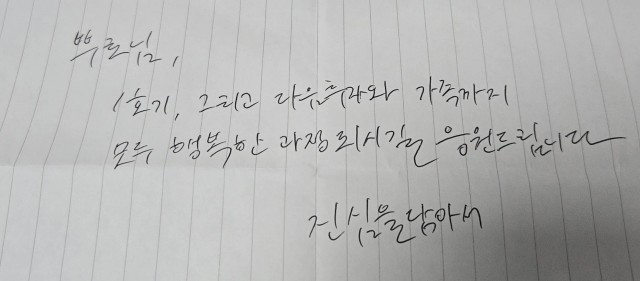 뿌로님,
1호기, 그리고 다음 가족까지
모두 행복한 과정 되시길 응원드립니다
진심을 담아서